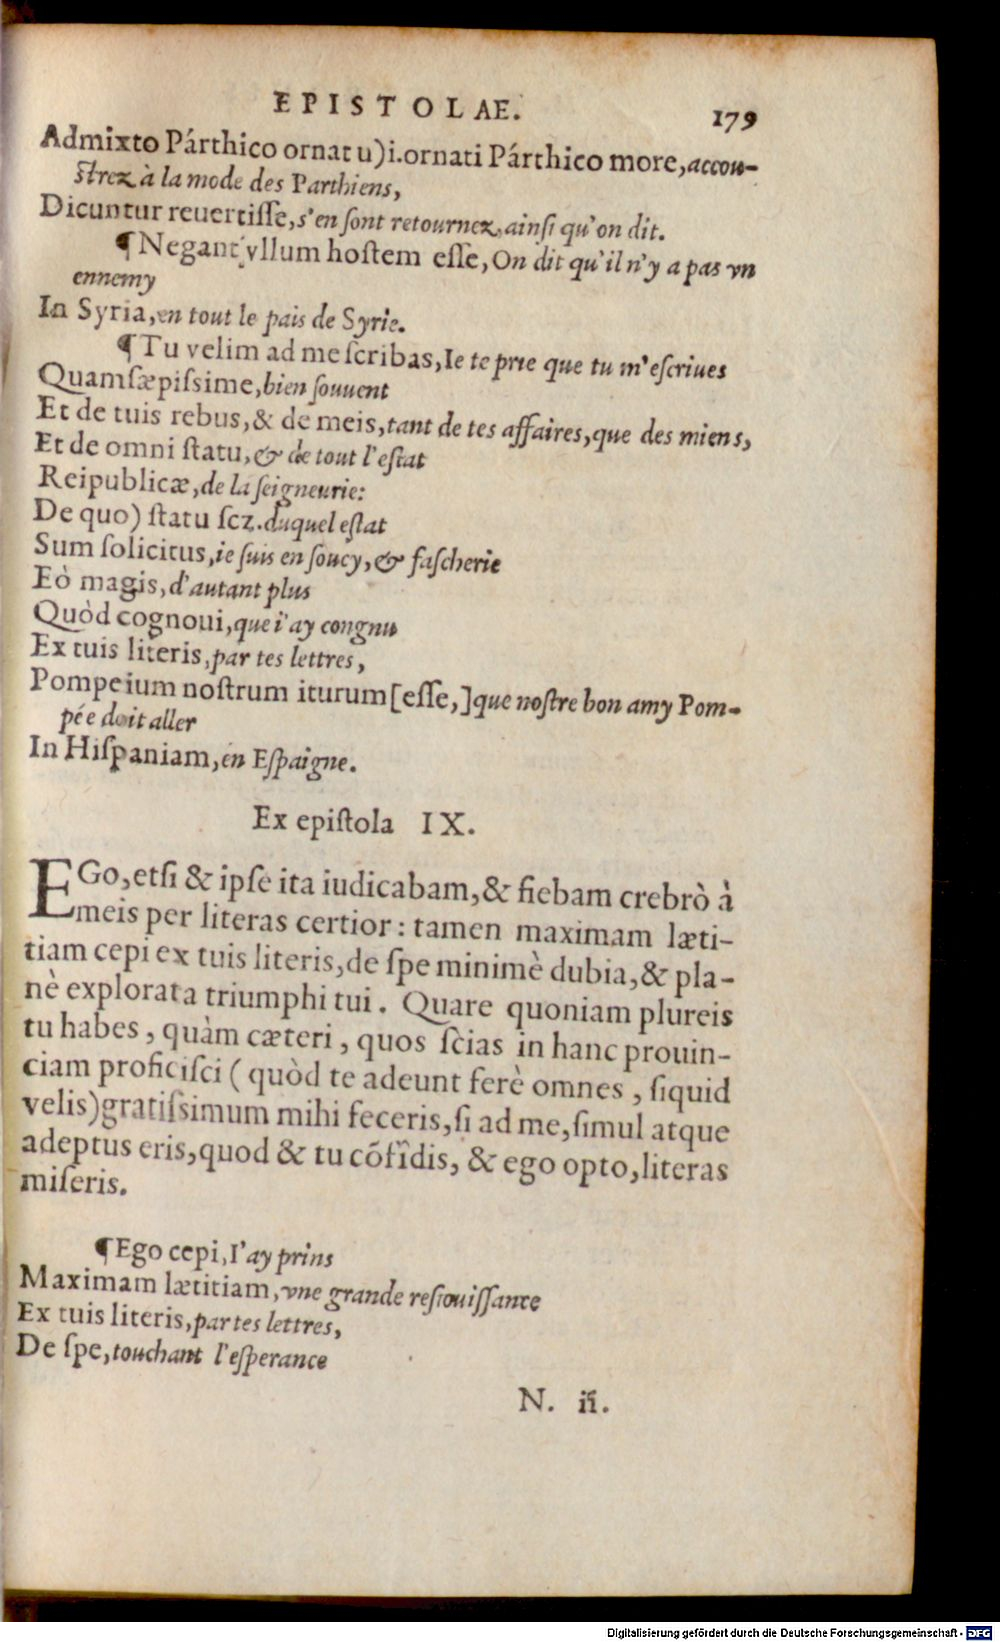 EPISTOLAE. 179
Admixto Párthico ornatu)i.ornati Párthico more,accou-
ſtrez à la mode des Parthiens,
Dicuntur reuertiſſe,s'en ſont retournez,ainſi qu'on dit.
¶Negant vllum hoſtem eſſe,On dit qu'il n'y a pas vn
ennemy
In Syria,en tout le pais de Syrie.
¶Tu velim ad me ſcribas,Ie te prie que tu m'eſcriues
Quamſæpiſsime,bien ſouuent
Et de tuis rebus,& de meis,tant de tes affaires,que des miens,
Et de omni ſtatu,& de tout l'eſtat
Reipublicæ,de la ſeigneurie:
De quo) ſtatu ſcz.duquel eſtat
Sum ſolicitus,ie ſuis en ſoucy,& faſcherie
Eò magis,d'autant plus
Quòd cognoui,que i'ay congnu
Ex tuis literis,par tes lettres,
Pompeium noſtrum iturum[eſſe,]que noſtre bon amy Pom-
pée doit aller
In Hiſpaniam,en Eſpaigne.
Ex epiſtola IX.
EGo,etſi & ipſe ita iudicabam,& fiebam crebrò à
meis per literas certior: tamen maximam læti-
tiam cepi ex tuis literis,de ſpe minimè dubia,& pla-
nè explorata triumphi tui. Quare quoniam plureis
tu habes, quàm cæteri, quos ſcias in hanc prouin-
ciam proficiſci (quòd te adeunt ferè omnes, ſiquid
velis)gratiſsimum mihi feceris,ſi ad me,ſimul atque
adeptus eris,quod & tu cõfidis, & ego opto,literas
miſeris.
¶Ego cepi,I'ay prins
Maximam lætitiam,vne grande reſiouiſſance
Ex tuis literis,par tes lettres,
De ſpe,touchant l'eſperance
N. ii.
Digitalisierung gefördert durch die Deutsche Forschungsgemeinschaft - DFG